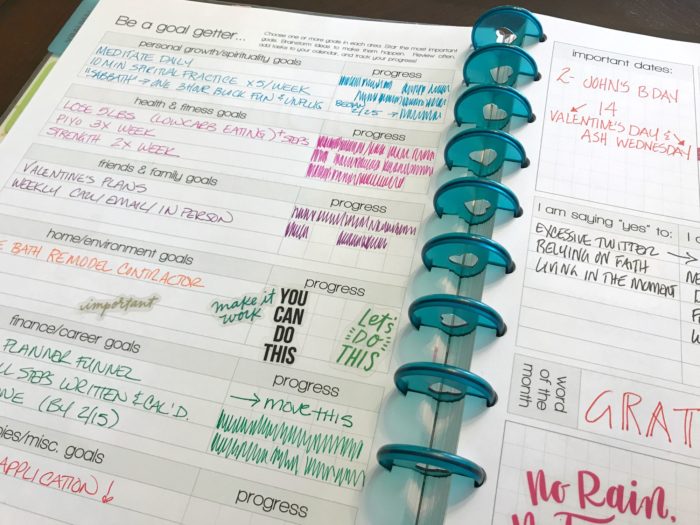 Be a goal getter...
Choose one or more goals in each area. Star the most important
goals. Brainstorm ideas to make them happen. Review often,
add tasks to your calendar, and track your progress!
personal growth/spirituality goals
progress
MEDITATE DAILY
10 MIN SPIRITUAL PRACTICE x5/WEEK
"SABBATH" → ONE 3 HOUR BLOCK FUN & UNPLUG
2/25 →
health & fitness goals
progress
LOSE 5LBS (LOWCARB EATING) + STEPS
PIYO 3x WEEK
STRENGTH 2x WEEK
friends & family goals
progress
VALENTINE'S PLANS
WEEKLY CALL/EMAIL/IN PERSON
home/environment goals
progress
BATH REMODEL CONTRACTOR
important
make it work
YOU CAN DO THIS
Let's DO THIS
finance/career goals
progress
PLANNER FUNNEL
→ MOVE THIS
STEPS WRITTEN & CAL'D.
(BY 2/15)
/misc. goals
progress
APPLICATION
important dates:
2 - JOHN'S B DAY
14
VALENTINE'S DAY &
ASH WEDNESDAY
I am saying "yes" to:
EXCESSIVE TWITTER →
RELYING ON FAITH
LIVING IN THE MOMENT
word of the month
GRAT
No Rain,